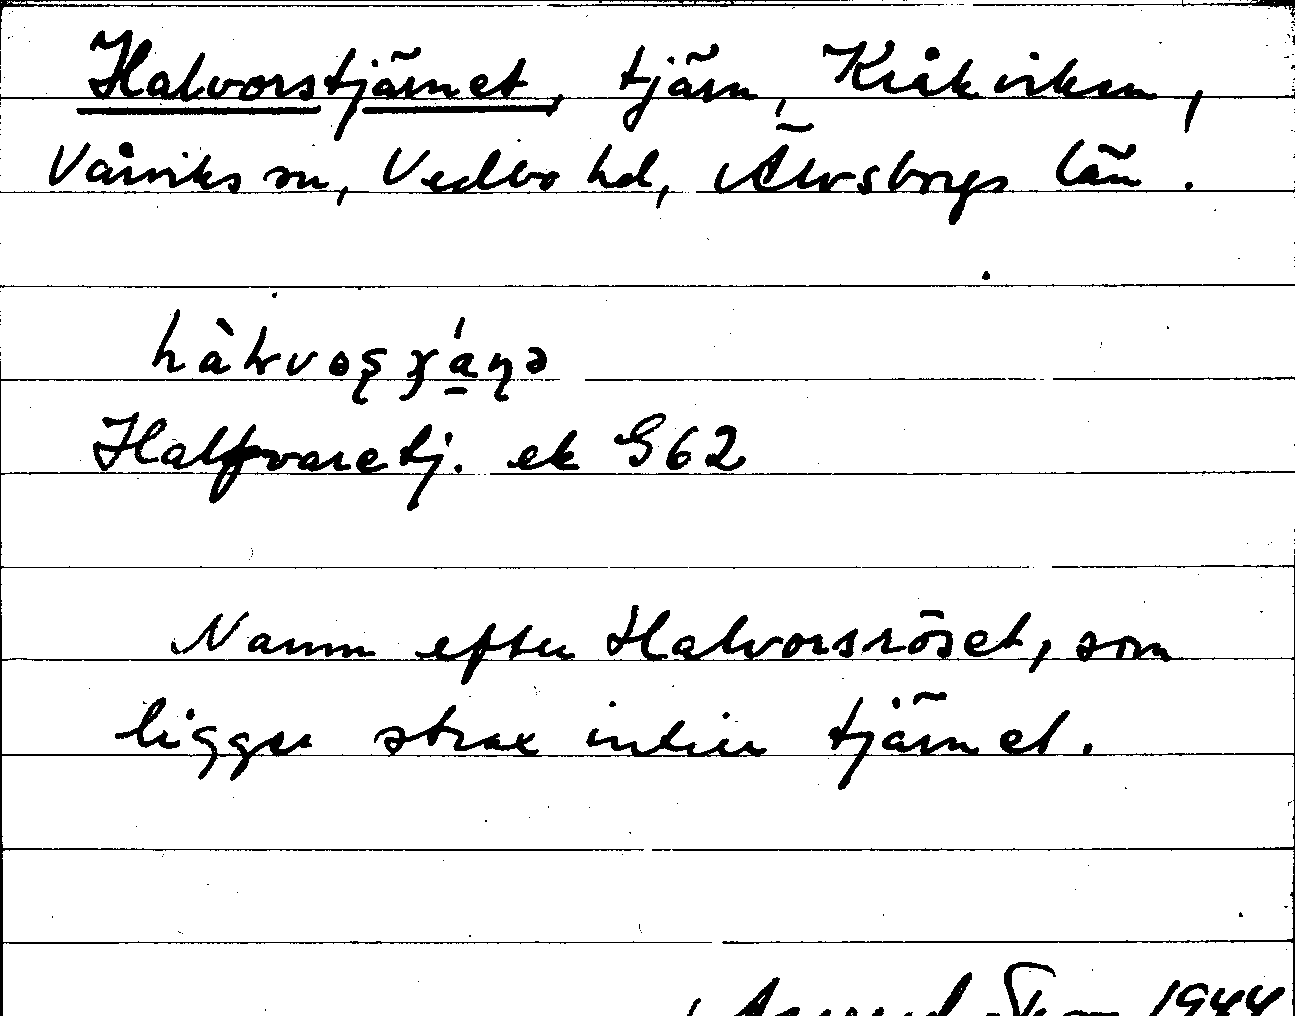 Halvorstjärnet, tjärn, Kråkviken,
Vårviks sn, Vedbo hd, Älvsborgs län.
hàɫvoʂ ɣáɳə
Halfvaretj. ek G62
Namn efter Halvorsröset, som
ligger strax intill tjärnet.
1944